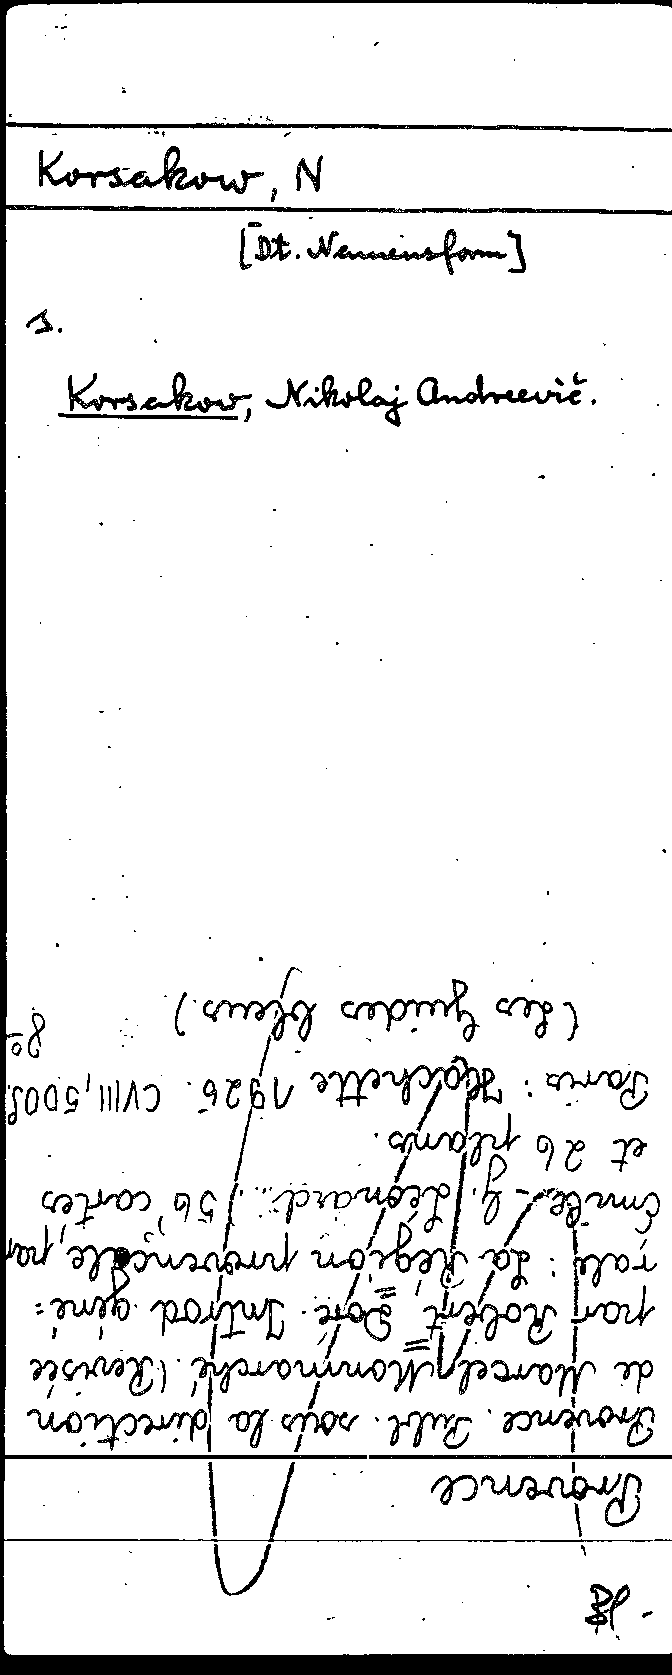 Korsakow, N
[Dt. Namensform]
s.
Korsakow, Nikolaj Andreevič.
Provence
Provence. Publ. sous la direction
de Marcel Monmarché. (Revisée
par Robert Doré. Introd. géné=
rale: La Région provençale, par
Émile-G. Léonard.. 56 cartes
et 26 plans.
Paris: Hachette 1925. CVIII, 500 S.
8°
(Les Guides bleus.)